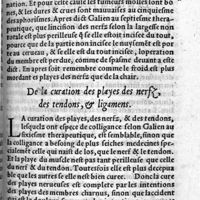 nation. Et pour ceste cause les tumeurs molles sont bo
nes, & les dures & crues sont mauuaises au cinquiesme
des aphorismes. Apres dict Galien au septiesme thera-
peutique, que lincision des nerfz selon la largeur non
totale est plus perilleuse q̃ si elle estoit incisee du tout,
pource que de la partie non incisee le nuysemẽt est por-
te au cerueau, & se elle est du tout incisee, loperation
du membre est perdue, comme de spasme deuant a este
dict. En apres soit remembre comme le froid est plus
mordant es playes des nerfz que de la chair.
De la curation des playes des nerfz,
des tendons, & ligamens.
LA curation des playes, des nerfz, & des tendons,
lesquelz ont espece de colligance selon Galien au
sixiesme therapeutique, est semblable, sinon que
la colligance a besoing de plus seiches medecines spe-
cialemẽt celle qui naist de los, que le nerf & le tendon.
Et la playe du muscle nest pas tant perilleuse que celle
du nerf & du tendon. Toutesfois elle est plus delecta-
ble que autres selle nest bien curee. Donc la curation
des playes nerueuses est complete par les intentions
des playes des membres charnuz, sinon que lacident